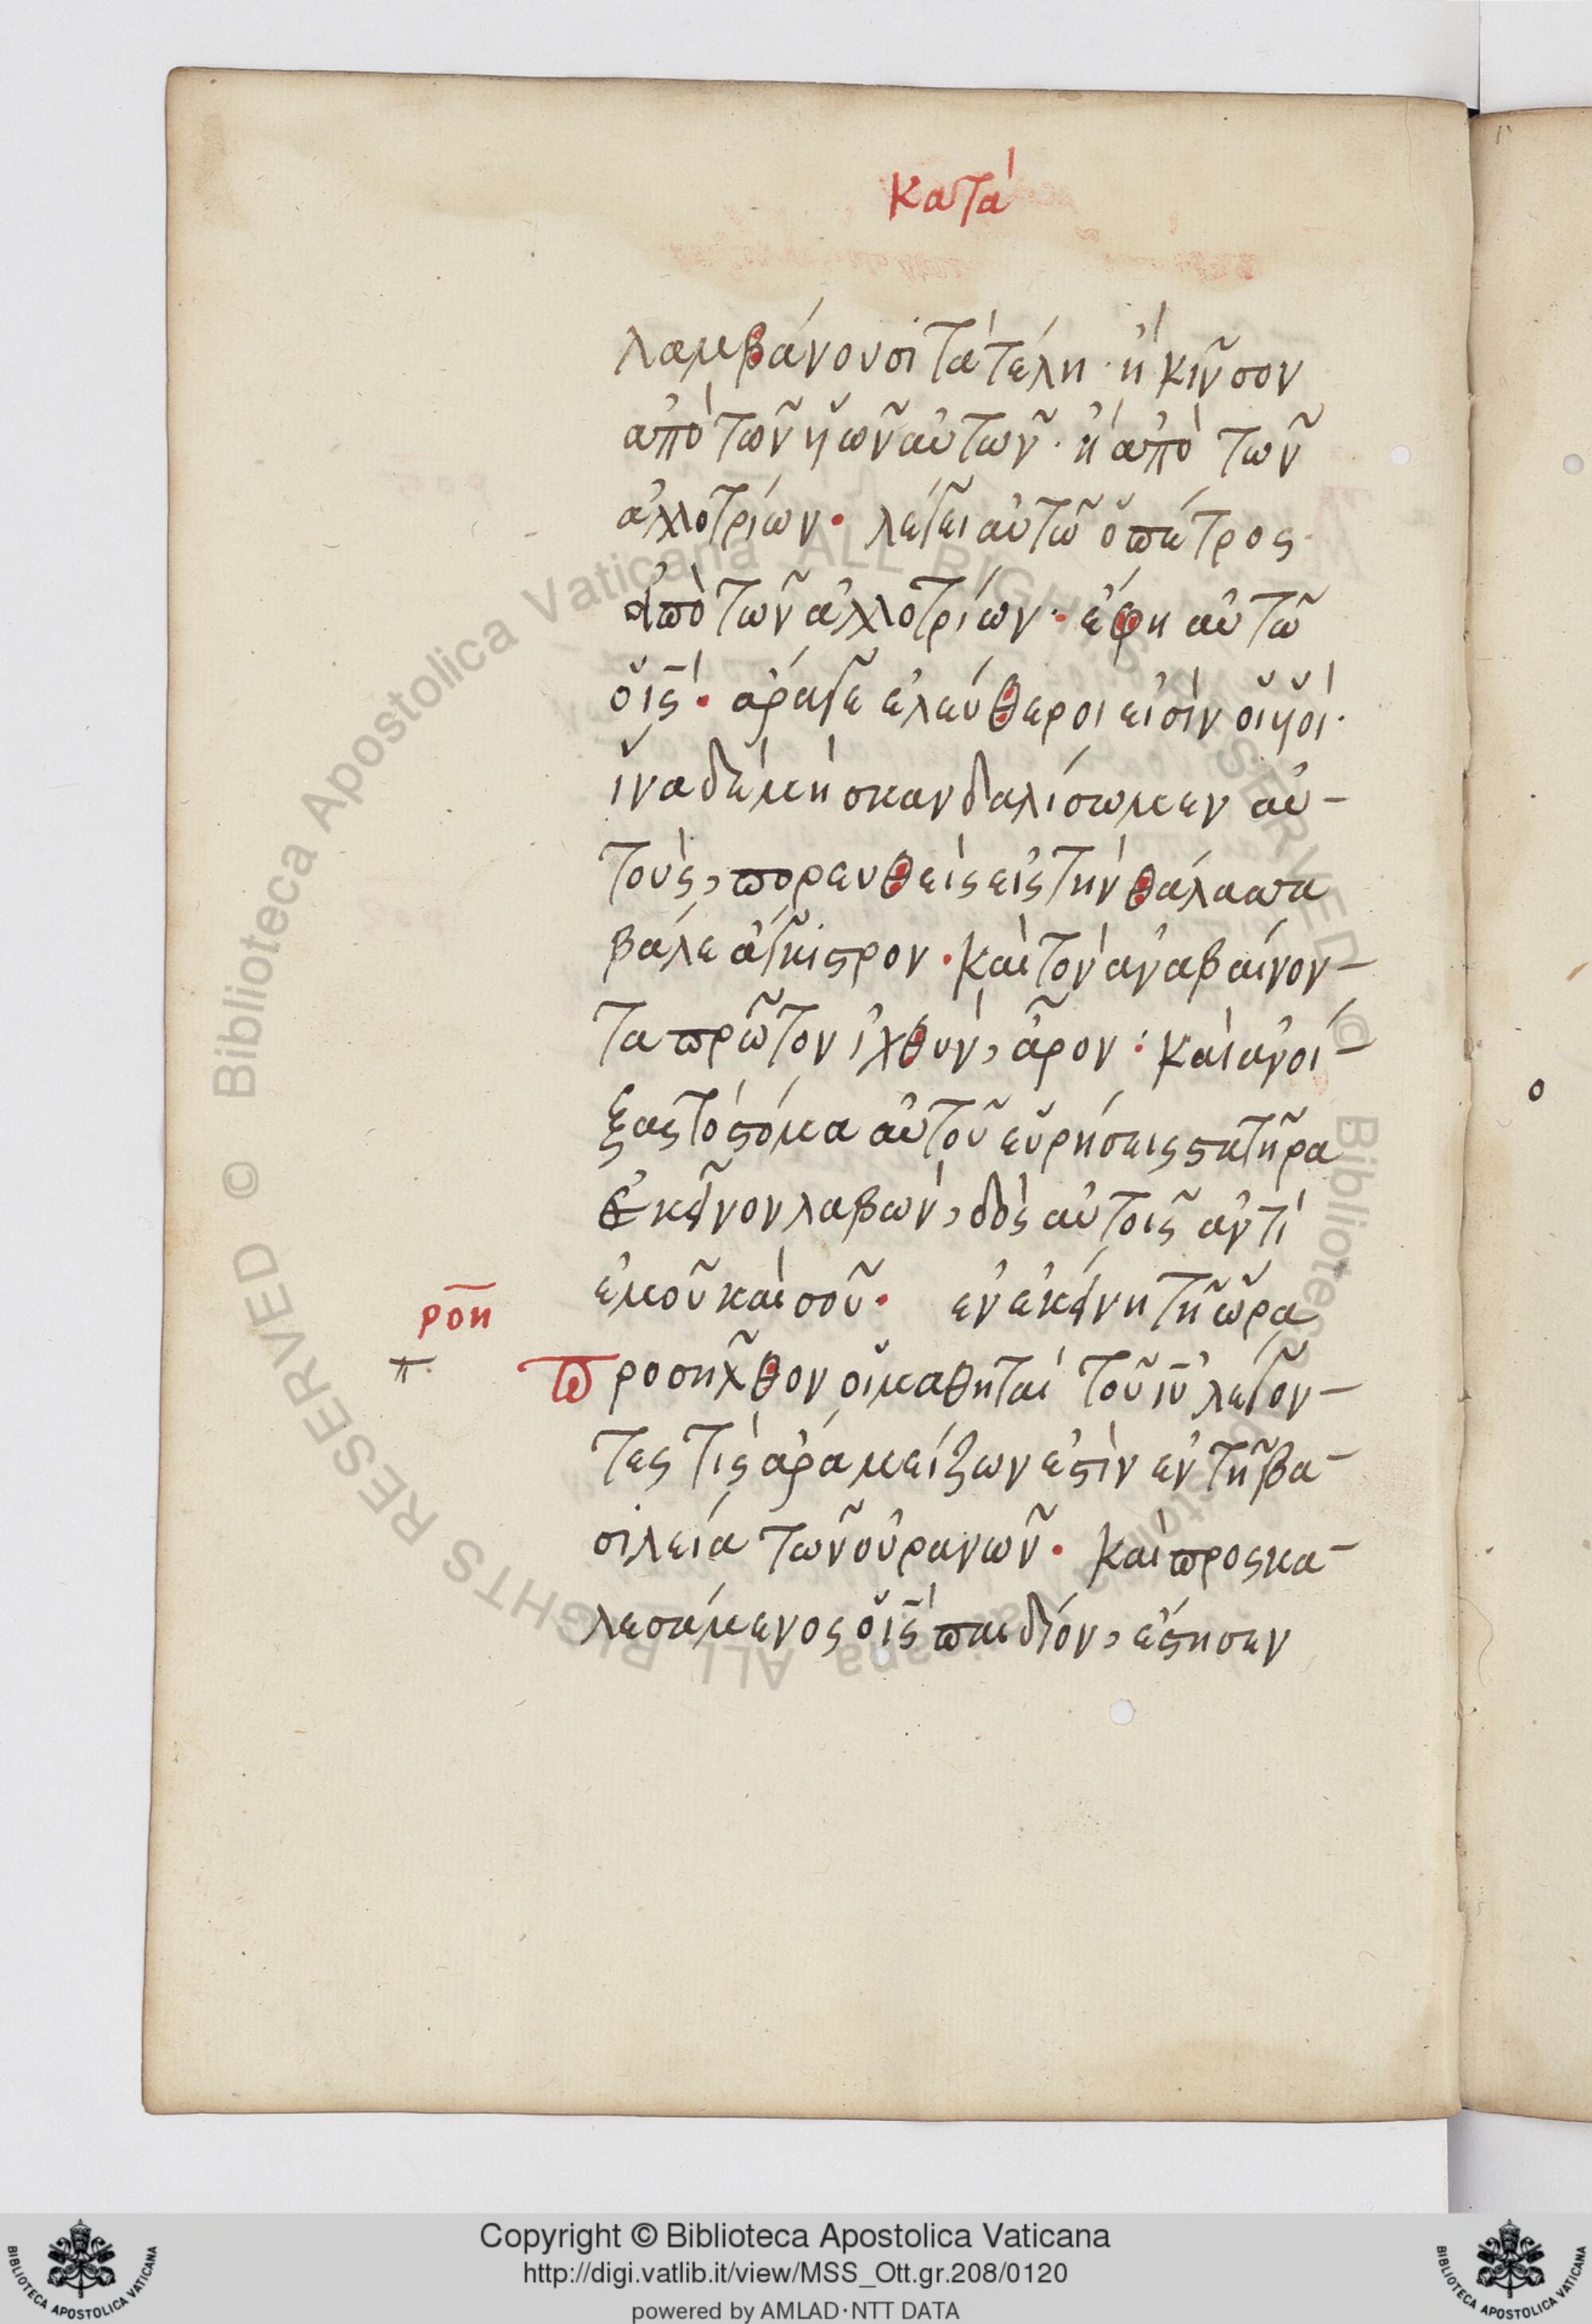 κατὰ
λαμβάνουσι τὰ τέλη· ἢ κῆνσον
ἀπὸ τῶν ὑῶν αὐτῶν· ἢ ἀπὸ τῶν
ἀλλοτρίων· λέγει αὐτῶ ὁ πέτρος·
ἀπὸ τῶν ἀλλοτρίων· ἔφη αὐτῶ
ὁ ις̅· ἄραγε ἐλεύθεροι εἰσὶν οἱ ὑοὶ·
ἵνα δὲ μὴ σκανδαλίσωμεν αὐ-
τοὺς, πορευθεὶς εἰς τὴν θάλασσα
βάλε ἄγκιστρον· καὶ τὸν ἀναβαίνον-
τα πρῶτον ἰχθὺν, ἆρον: καὶ ἀνοί-
ξας τὸ στόμα αὐτοῦ εὑρήσεις στατῆρα
ἐκεῖνον λαβὼν, δὸς αὐτοῖς ἀντὶ
ἐμοῦ καὶ σοῦ· ἐν ἐκείνη τῆ ὥρα
ροη
π
προσῆλθον οἱ μαθηταὶ τοῦ ιυ̅ λέγον-
τες τίς ἄρα μείζων ἐστὶν ἐν τῆ βα-
σιλεία τῶν οὐρανῶν· καὶ προσκα-
λεσάμενος ὁ ις̅ παιδίον, ἔστησεν
Copyright © Biblioteca Apostolica Vaticana
http://digi.vatlib.it/view/MSS_Ott.gr.208/0120
powered by AMLAD·NTT DATA
BIBLIOTECA APOSTOLICA VATICANA
BIBLIOTECA APOSTOLICA VATICANA
Biblioteca Apostolica Vaticana ALL RIGHTS RESERVED ©
Biblioteca Apostolica Vaticana ALL RIGHTS RESERVED ©